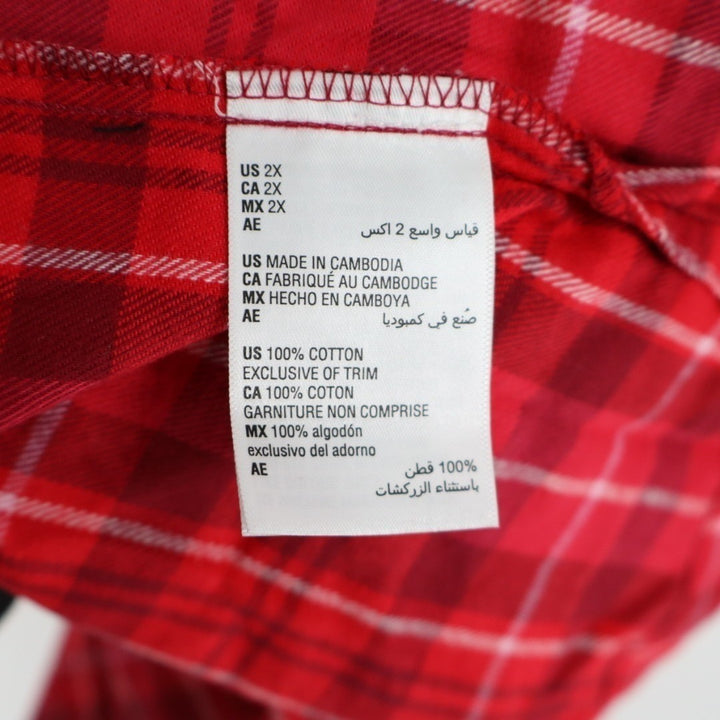 US 2X
CA 2X
MX 2X
AE قياس واسع 2 اكس
US MADE IN CAMBODIA
CA FABRIQUÉ AU CAMBODGE
MX HECHO EN CAMBOYA
AE صُنع في كمبوديا
US 100% COTTON
EXCLUSIVE OF TRIM
CA 100% COTON
GARNITURE NON COMPRISE
MX 100% algodón
exclusivo del adorno
AE 100% قطن
باستثناء الزركشات